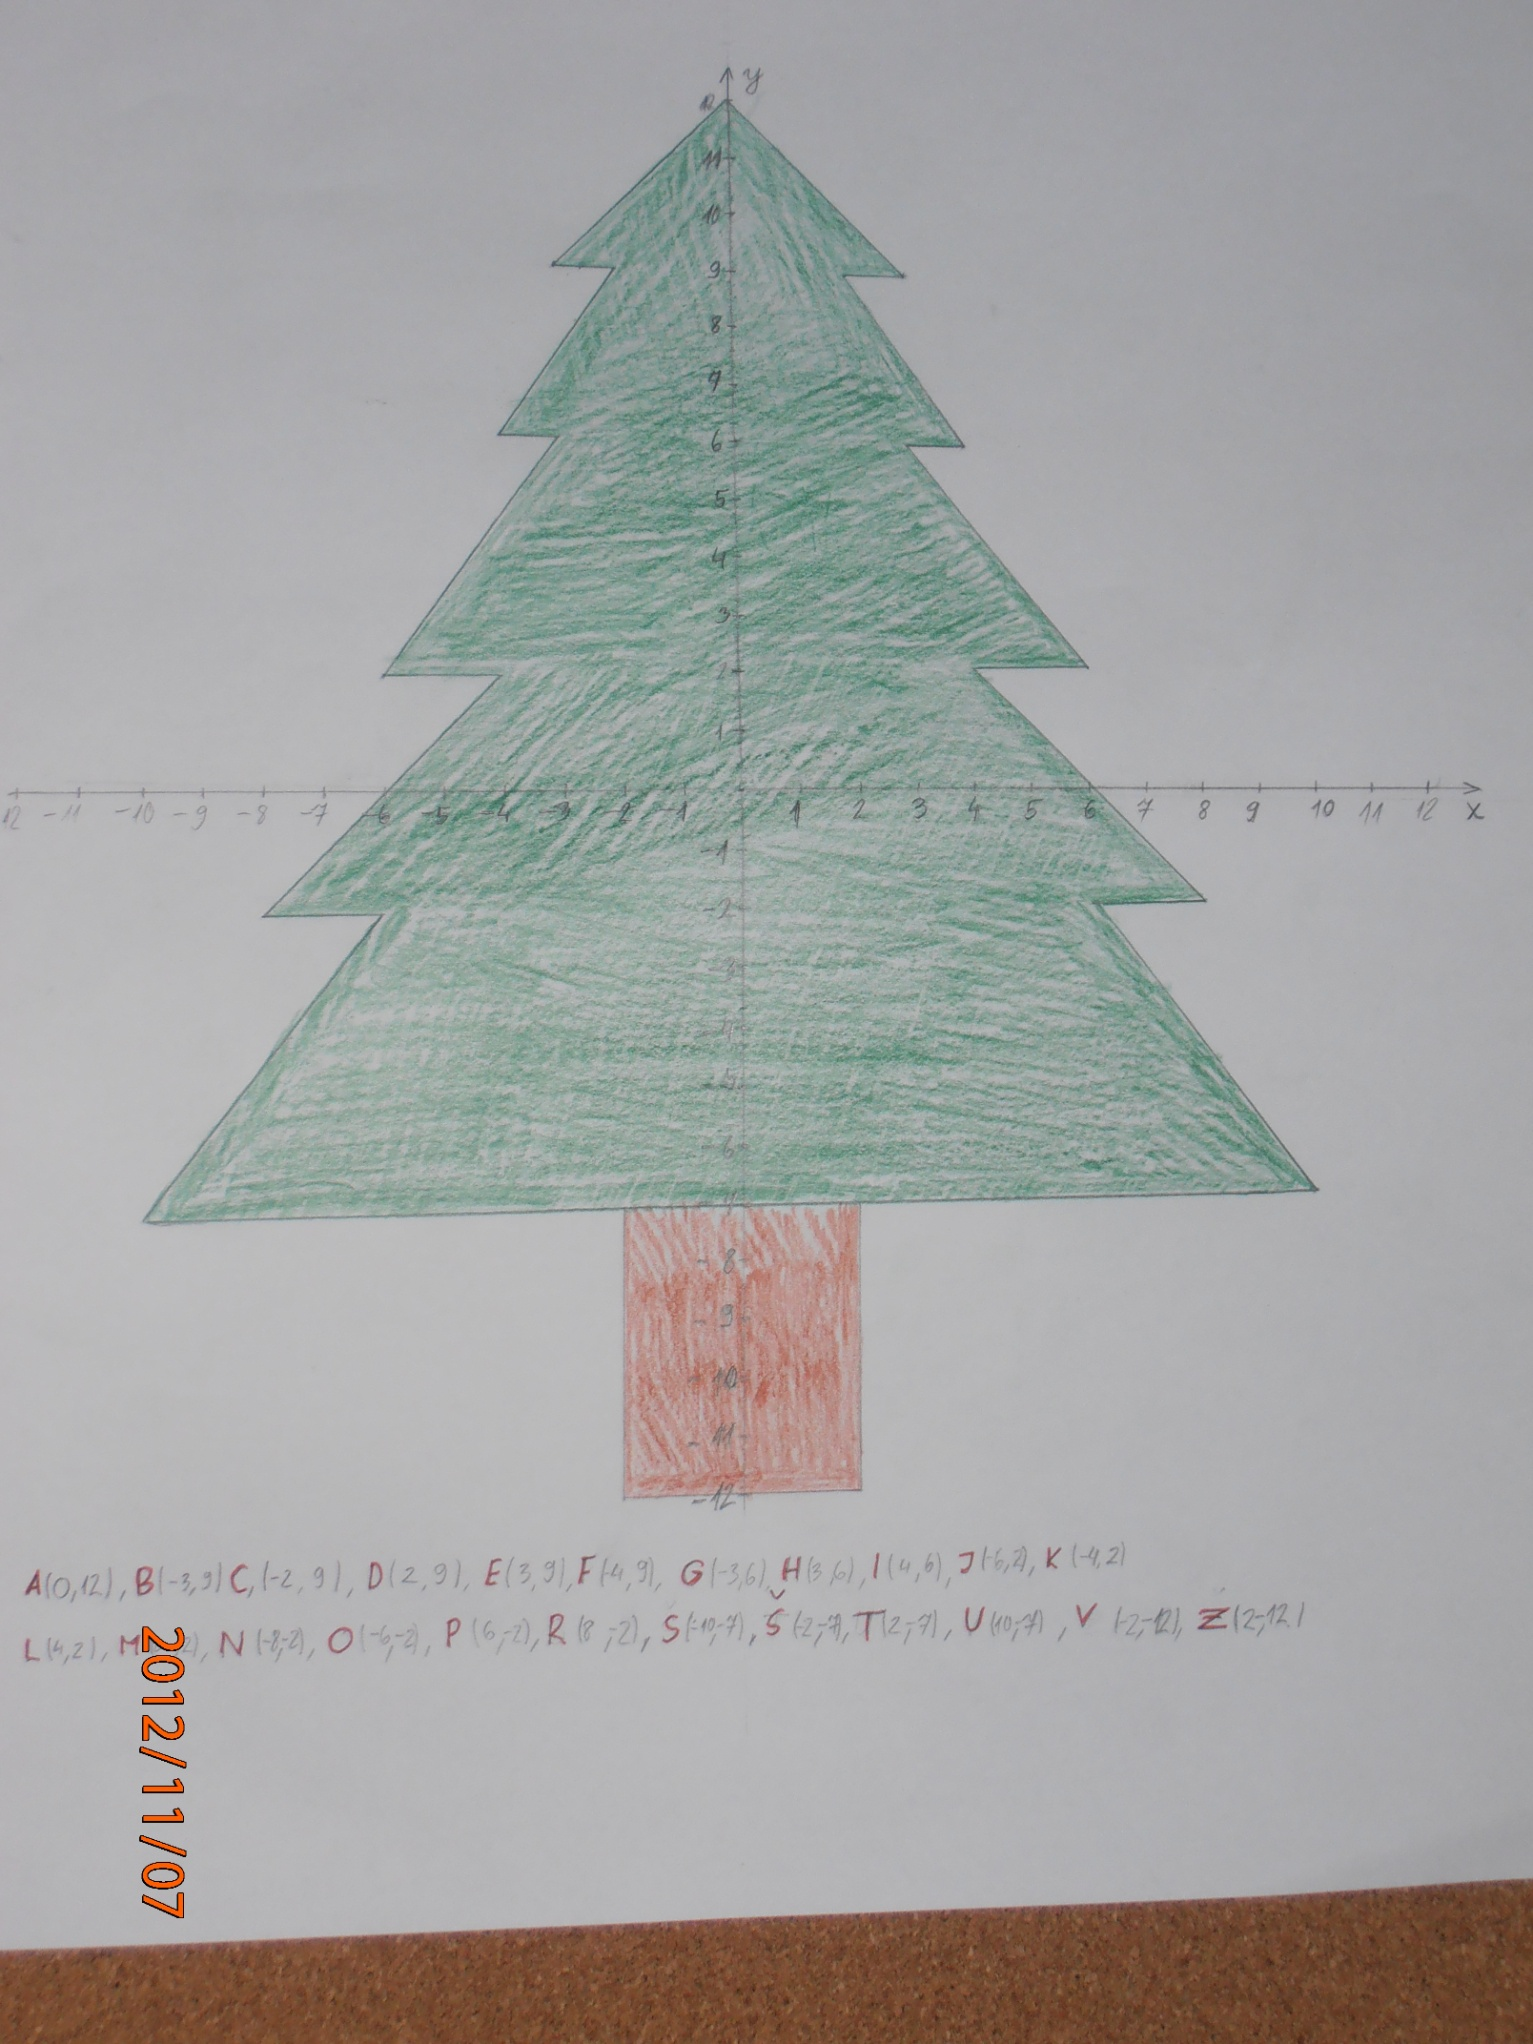 y
12
11
10
9
8
7
6
5
4
3
2
1
12 -11 -10 -9 -8 -7 -6 -5 -4 -3 -2 -1 1 2 3 4 5 6 7 8 9 10 11 12 x
-1
-2
-3
-4
-5
-6
-7
-8
-9
-10
-11
-12
A(0,12), B(-3,9) C,(-2,9), D(2,9), E(3,9), F(-4,9), G(-3,6), H(3,6), I(4,6), J(-6,2), K(-4,2)
L(4,2), M 2), N(-8,-2), O(-6,-2), P(6,-2), R(8,-2), S(-10,-7), Š(-2,-7), T(2,-7), U(10,-7), V(-2,-12), Z(2,-12)
2012/11/07